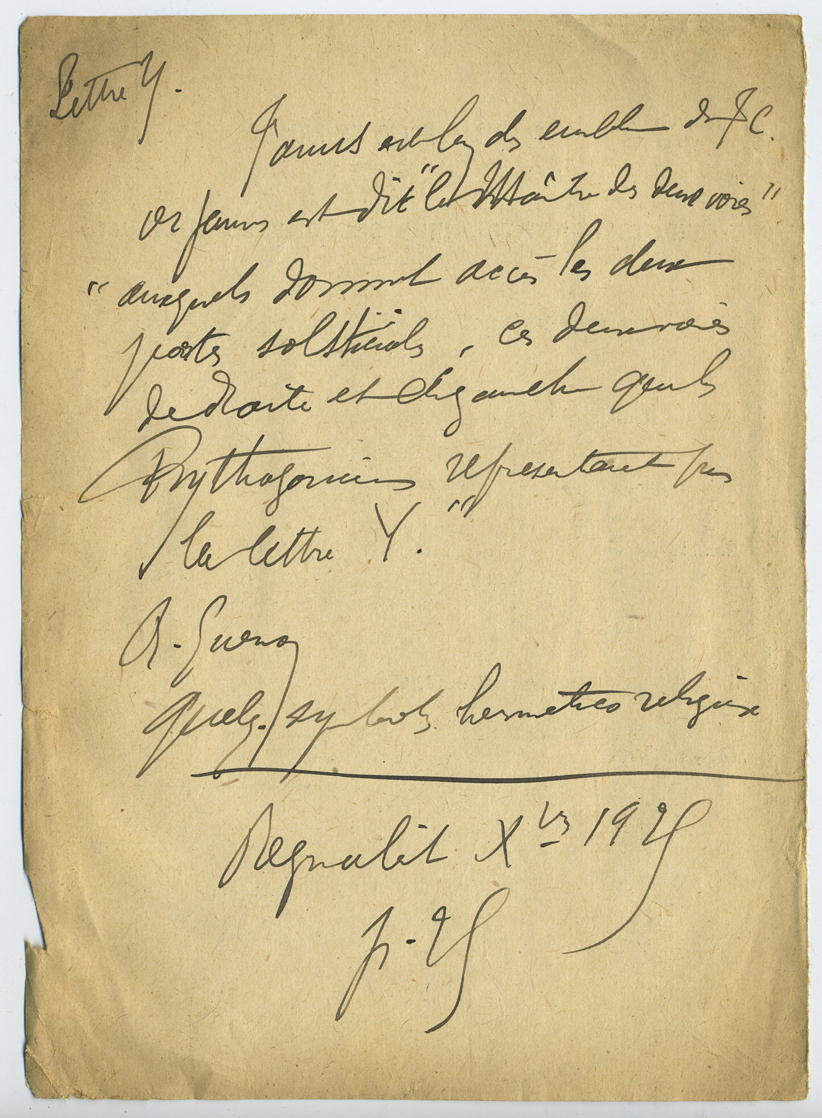 Lettre Y.
Janus est l'un des emblem du J C.
or Janus est dit "le Maître des deux voies"
"auxquels donnent accès les deux
portes solsticiales, ces deux voies
de droite et de gauche que les
Pythagoriciens représentaient par
la lettre Y."
R. Guenon
Quelq. symboles hermetico religieux
Regnabit Xbre 1925
p. 25